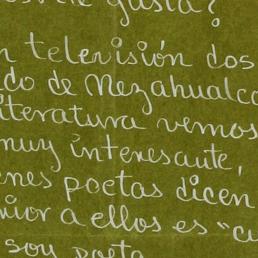 gusta?
n televisión dos
do de Nezahualco
literatura vemos
muy interesante,
enes poetas dicen
a ellos es "cu
sou poeta